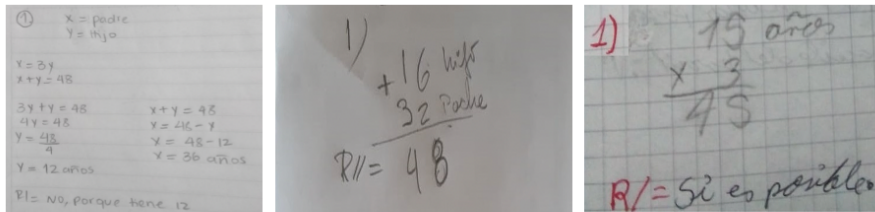 ① X = padre
Y = Hijo
X = 3y
x + y = 48
3y + y = 48
4y = 48
Y = 48/4
Y = 12 años
x + y = 48
X = 48 - y
X = 48 - 12
X = 36 años
R/= NO, porque tiene 12
1)
+ 16 hijo
32 Padre
R//= 48
1) 15 años
x 3
45
R/= Si es posible.